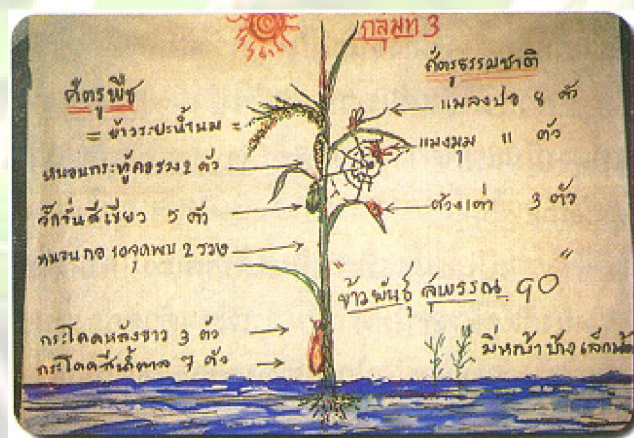 กลุ่มที่ 3
ศัตรูพืช
= ข้าวระยะน้ำนม =
หนอนกระทู้คอรวง 2 ตัว
จั๊กจั่นสีเขียว 5 ตัว
หนอนกอ 10 จุดพบ 2 รวง
กระโดดหลังขาว 3 ตัว
กระโดดสีน้ำตาล 7 ตัว
ศัตรูธรรมชาติ
แมลงปอ 8 ตัว
แมงมุม 11 ตัว
ด้วงเต่า 3 ตัว
"ข้าวพันธุ์ สุพรรณ 90"
มีหญ้าบ้างเล็กน้อย